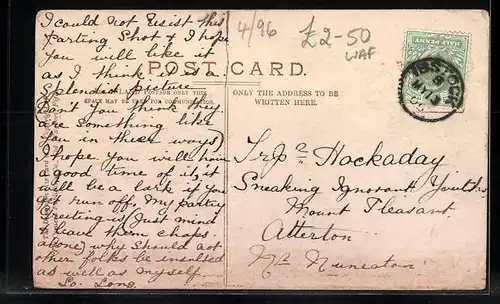 I could not resist this
parting shot & I hope
you will like it
as I think it is a
splendid picture
Don't you think they
are something like
you in their ways)
I hope you will have
a good time of it, it
will be a lark if you
get run off. My
greetings (Just mind
& leave them chaps
alone) why should not
other folks be insulted
as well as myself.
So. Long.
4/96
£2-50
WAF
POST CARD.
SPACE MAY BE USED FOR COMMUNICATION.
ONLY THE ADDRESS TO BE
WRITTEN HERE.
HALF PENNY
IBSTOCK
Hackaday
Sneaking Ignorant Youths
Mount Pleasant
Atterton
Nr Nuneaton